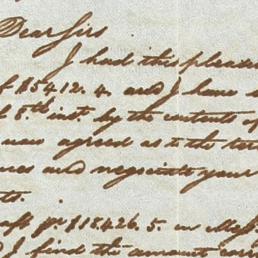 Dear Sirs
I had this pleasure
of $5412. 4. and I have
of 5th inst. by the contents of
was agreed as to the
and negociate your
pr $18426. 5. on Mess
I find the amount